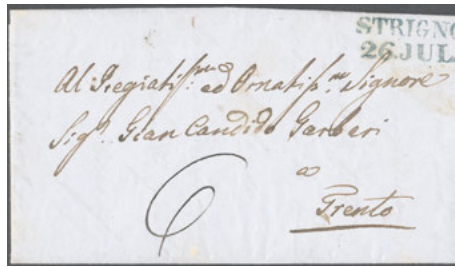 STRIGNO
26.JUL.
Al Pregiatis.mo ed Ornatis.mo Signore
Sig.r Gian Candido Garberi
a
6
Trento